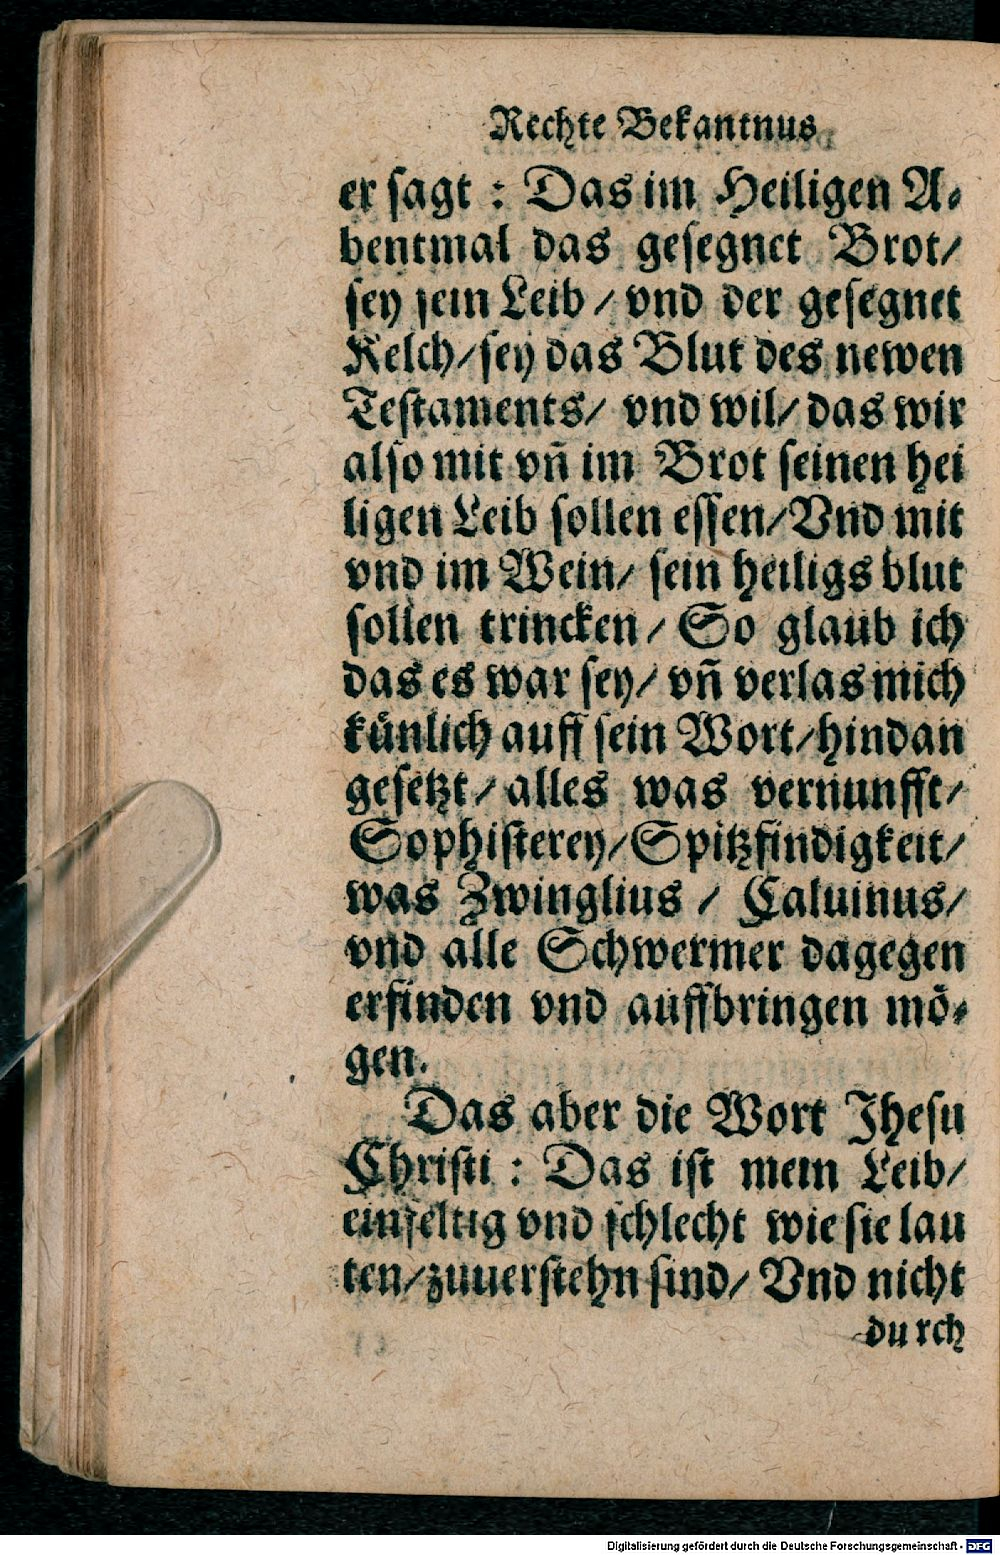 Rechte Bekantnus
er sagt : Das im Heiligen A⸗
bentmal das gesegnet Brot/
sey sein Leib / vnd der gesegnet
Kelch/sey das Blut des newen
Testaments/ vnd wil/ das wir
also mit vñ im Brot seinen hei
ligen Leib sollen essen/Vnd mit
vnd im Wein/ sein heiligs blut
sollen trincken / So glaub ich
das es war sey/ vñ verlas mich
künlich auff sein Wort/hindan
gesetzt / alles was vernunfft/
Sophisterey/Spitzfindigkeit/
was Zwinglius / Caluinus/
vnd alle Schwermer dagegen
erfinden vnd auffbringen mö⸗
gen.
Das aber die Wort Jhesu
Christi : Das ist mein Leib/
einfeltig vnd schlecht wie sie lau
ten/zuuerstehn sind/ Vnd nicht
durch
Digitalisierung gefördert durch die Deutsche Forschungsgemeinschaft - DFG